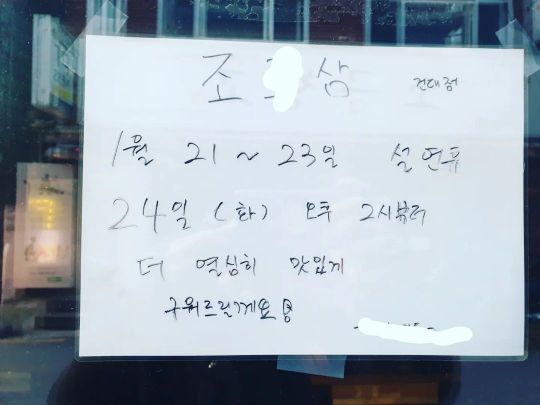 조 삼 건대점
1월 21 ~ 23일 설 연휴
24일 (화) 오후 2시부터
더 열심히 맛있게
구워드릴게요